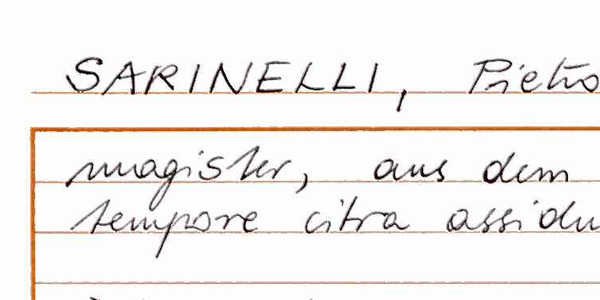 SARINELLI, Pietro
magister, aus dem
tempore citra assidu